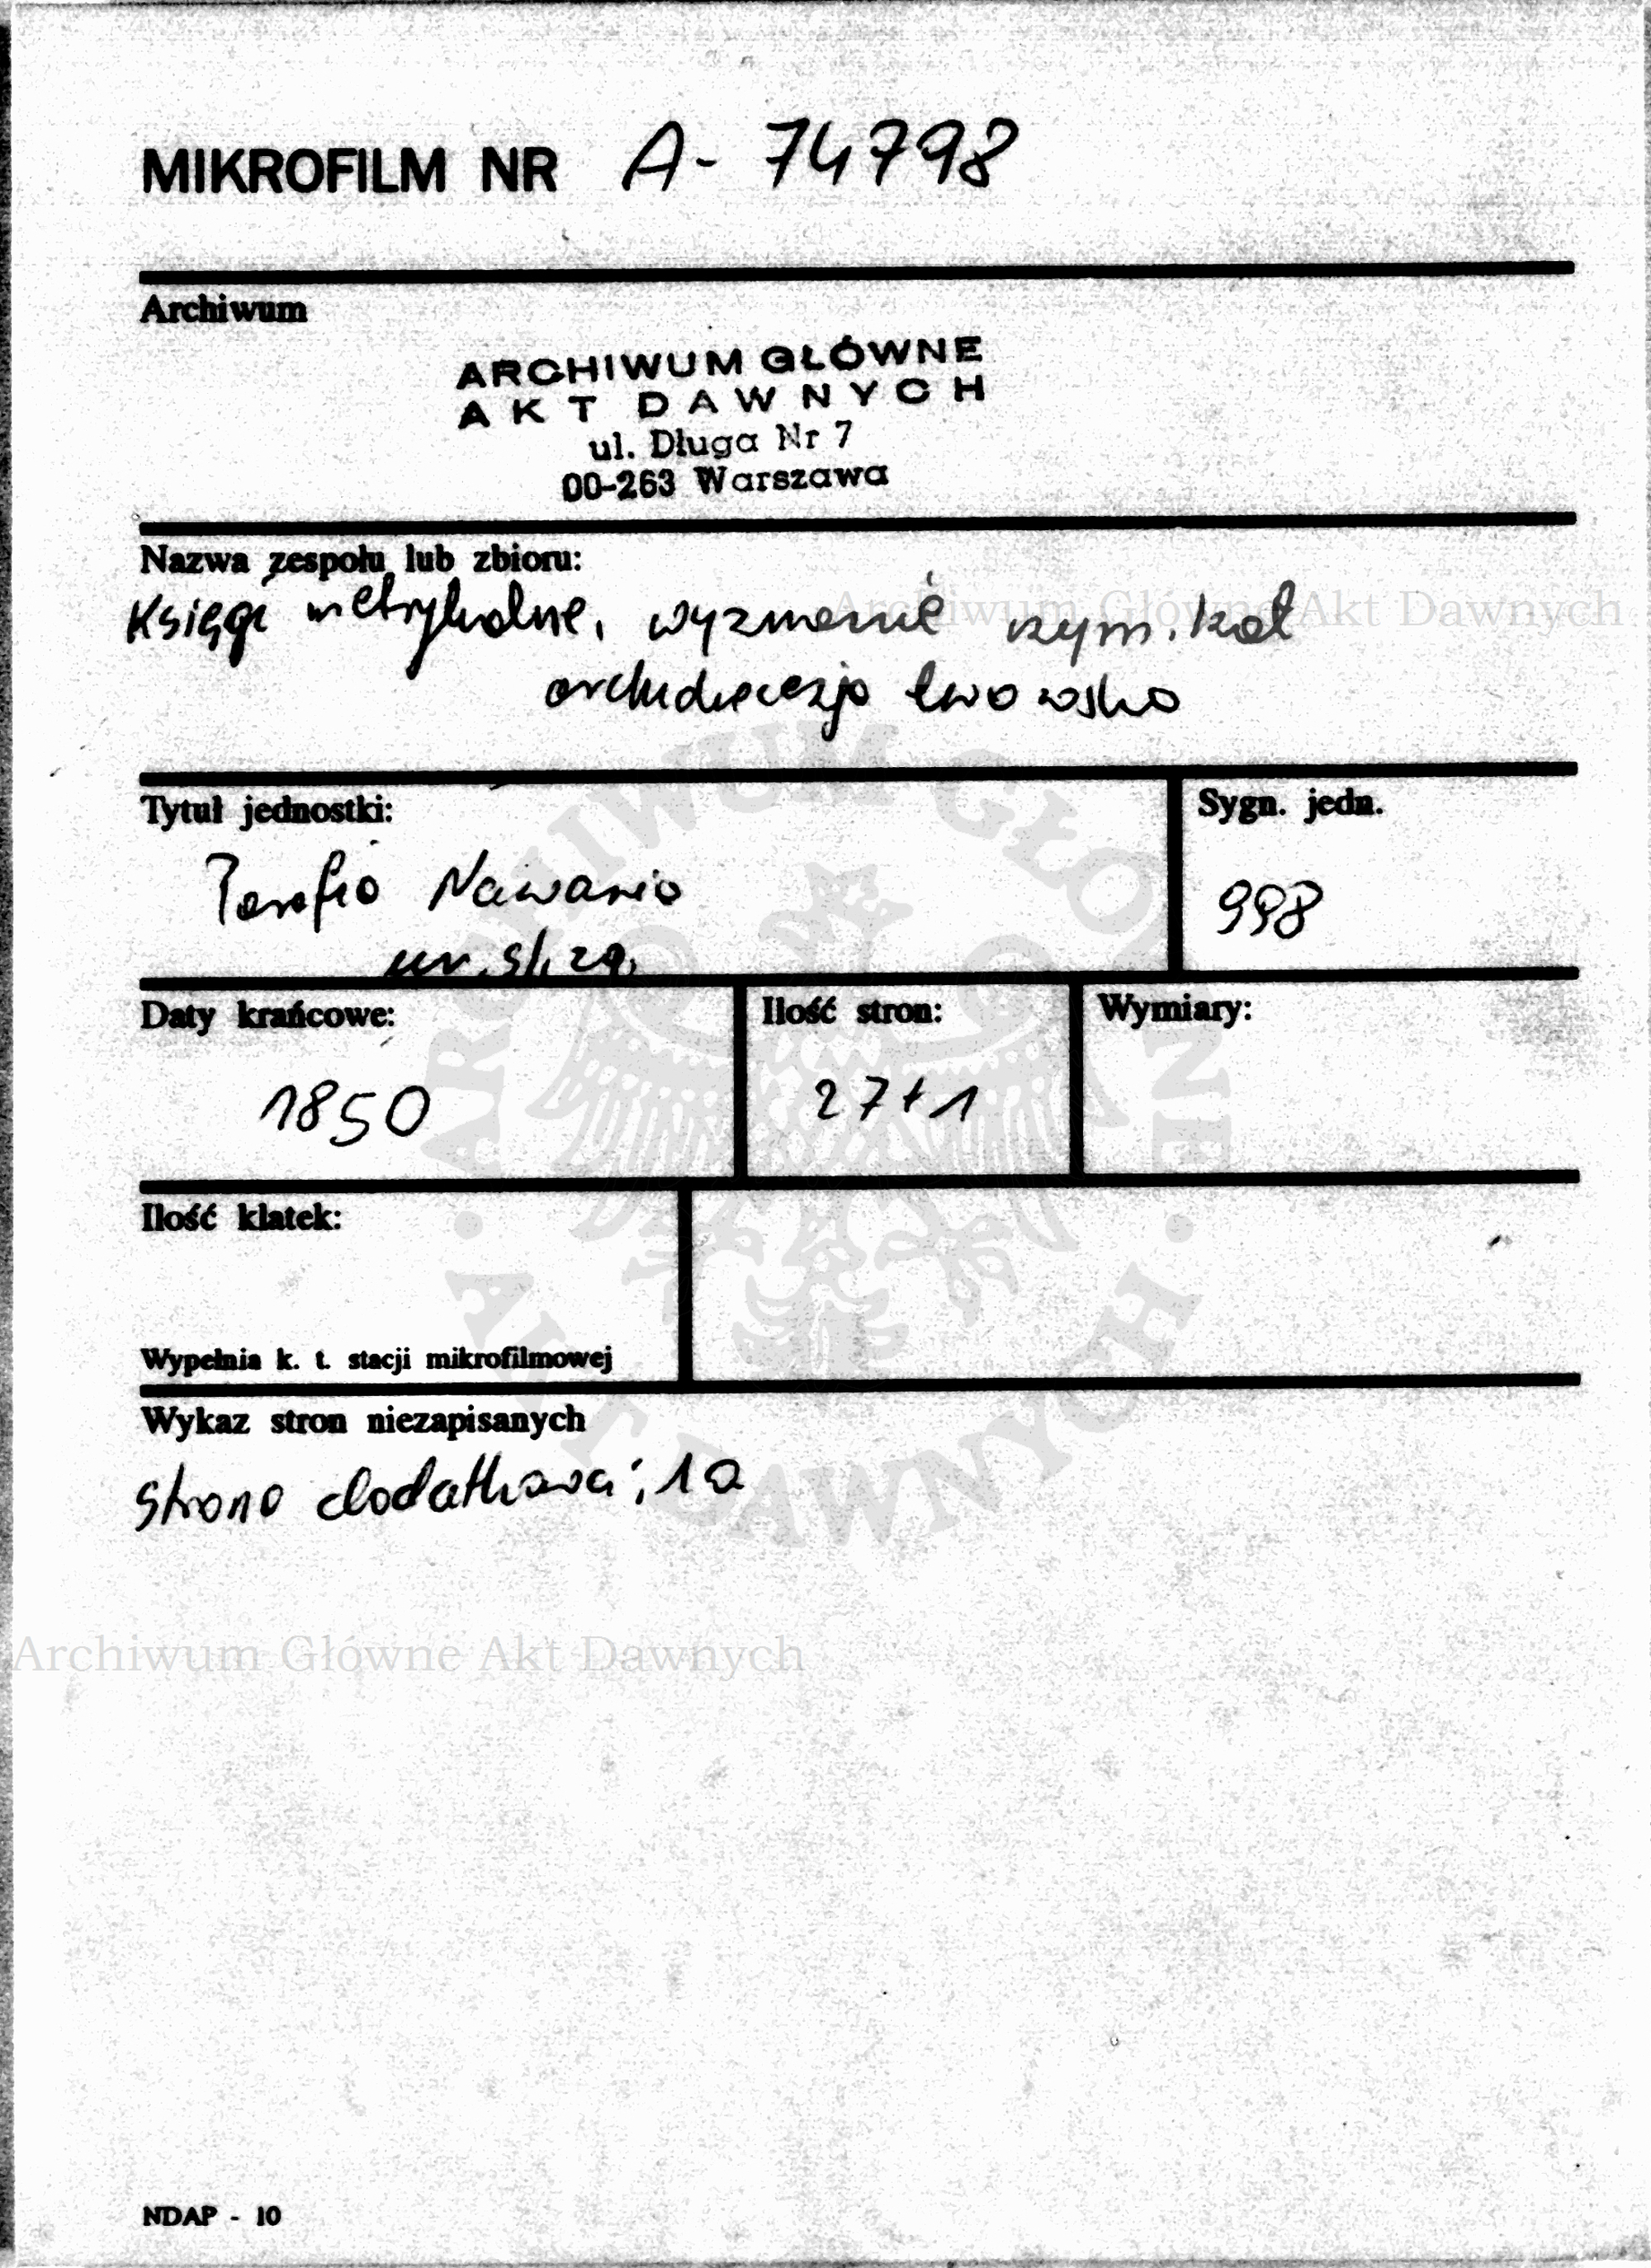 MIKROFILM NR A-74798
Archiwum
ARCHIWUM GŁÓWNE
AKT DAWNYCH
ul. Długa Nr 7
00-263 Warszawa
Nazwa zespołu lub zbioru:
Archiwum Główne Akt Dawnych
Księgi metrykalne, wyznanie rzym. kat
archidiecezja lwowska
Tytuł jednostki:
Sygn. jedn.
Parafia Nawaria
998
ur. śl. zg.
Daty krańcowe:
Ilość stron:
Wymiary:
1850
27+1
Ilość klatek:
Wypełnia k. t. stacji mikrofilmowej
Wykaz stron niezapisanych
strona dodatkowa: 1a
ARCHIWUM GŁÓWNE · AKT DAWNYCH ·
Archiwum Główne Akt Dawnych
NDAP - 10